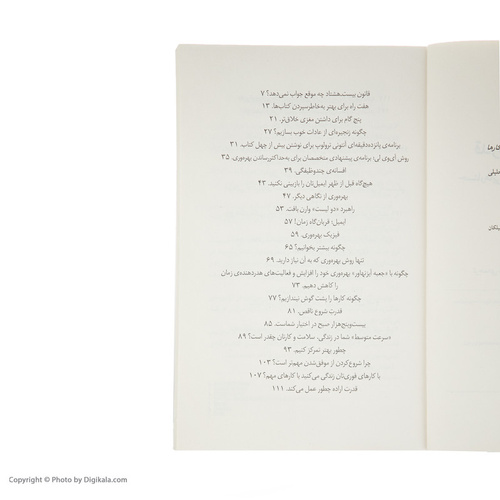 قانون بیست‌هشتاد چه موقع جواب نمی‌دهد؟ ۷
هفت راه برای بهتر به‌خاطرسپردن کتاب‌ها. ۱۳
پنج گام برای داشتن مغزی خلاق‌تر. ۲۱
چگونه زنجیره‌ای از عادات خوب بسازیم؟ ۲۷
برنامه‌ی پانزده‌دقیقه‌ای آنتونی ترولوپ برای نوشتن بیش از چهل کتاب. ۳۱
روش آی‌وی لی؛ برنامه‌ی پیشنهادی متخصصان برای به‌حداکثررساندن بهره‌وری. ۳۵
افسانه‌ی چندوظیفگی. ۳۹
هیچ‌گاه قبل از ظهر ایمیل‌تان را بازبینی نکنید. ۴۳
بهره‌وری از نگاهی دیگر. ۴۷
راهبرد «دو لیست» وارن بافت. ۵۳
ایمیل؛ قربان‌گاه زمان! ۵۷
فیزیک بهره‌وری. ۵۹
چگونه بیشتر بخوانیم؟ ۶۵
تنها روش بهره‌وری که به آن نیاز دارید. ۶۹
چگونه با «جعبه آیزنهاور» بهره‌وری خود را افزایش و فعالیت‌های هدردهنده‌ی زمان
را کاهش دهیم. ۷۳
چگونه کارها را پشت گوش نیندازیم؟ ۷۷
قدرت شروع ناقص. ۸۱
بیست‌وپنج‌هزار صبح در اختیار شماست. ۸۵
«سرعت متوسط» شما در زندگی، سلامت و کارتان چقدر است؟ ۸۹
چطور بهتر تمرکز کنیم. ۹۳
چرا شروع‌کردن از موفق‌شدن مهم‌تر است؟ ۱۰۳
با کارهای فوری‌تان زندگی می‌کنید یا کارهای مهم؟ ۱۰۷
قدرت اراده چطور عمل می‌کند. ۱۱۱
Copyright © Photo by Digikala.com